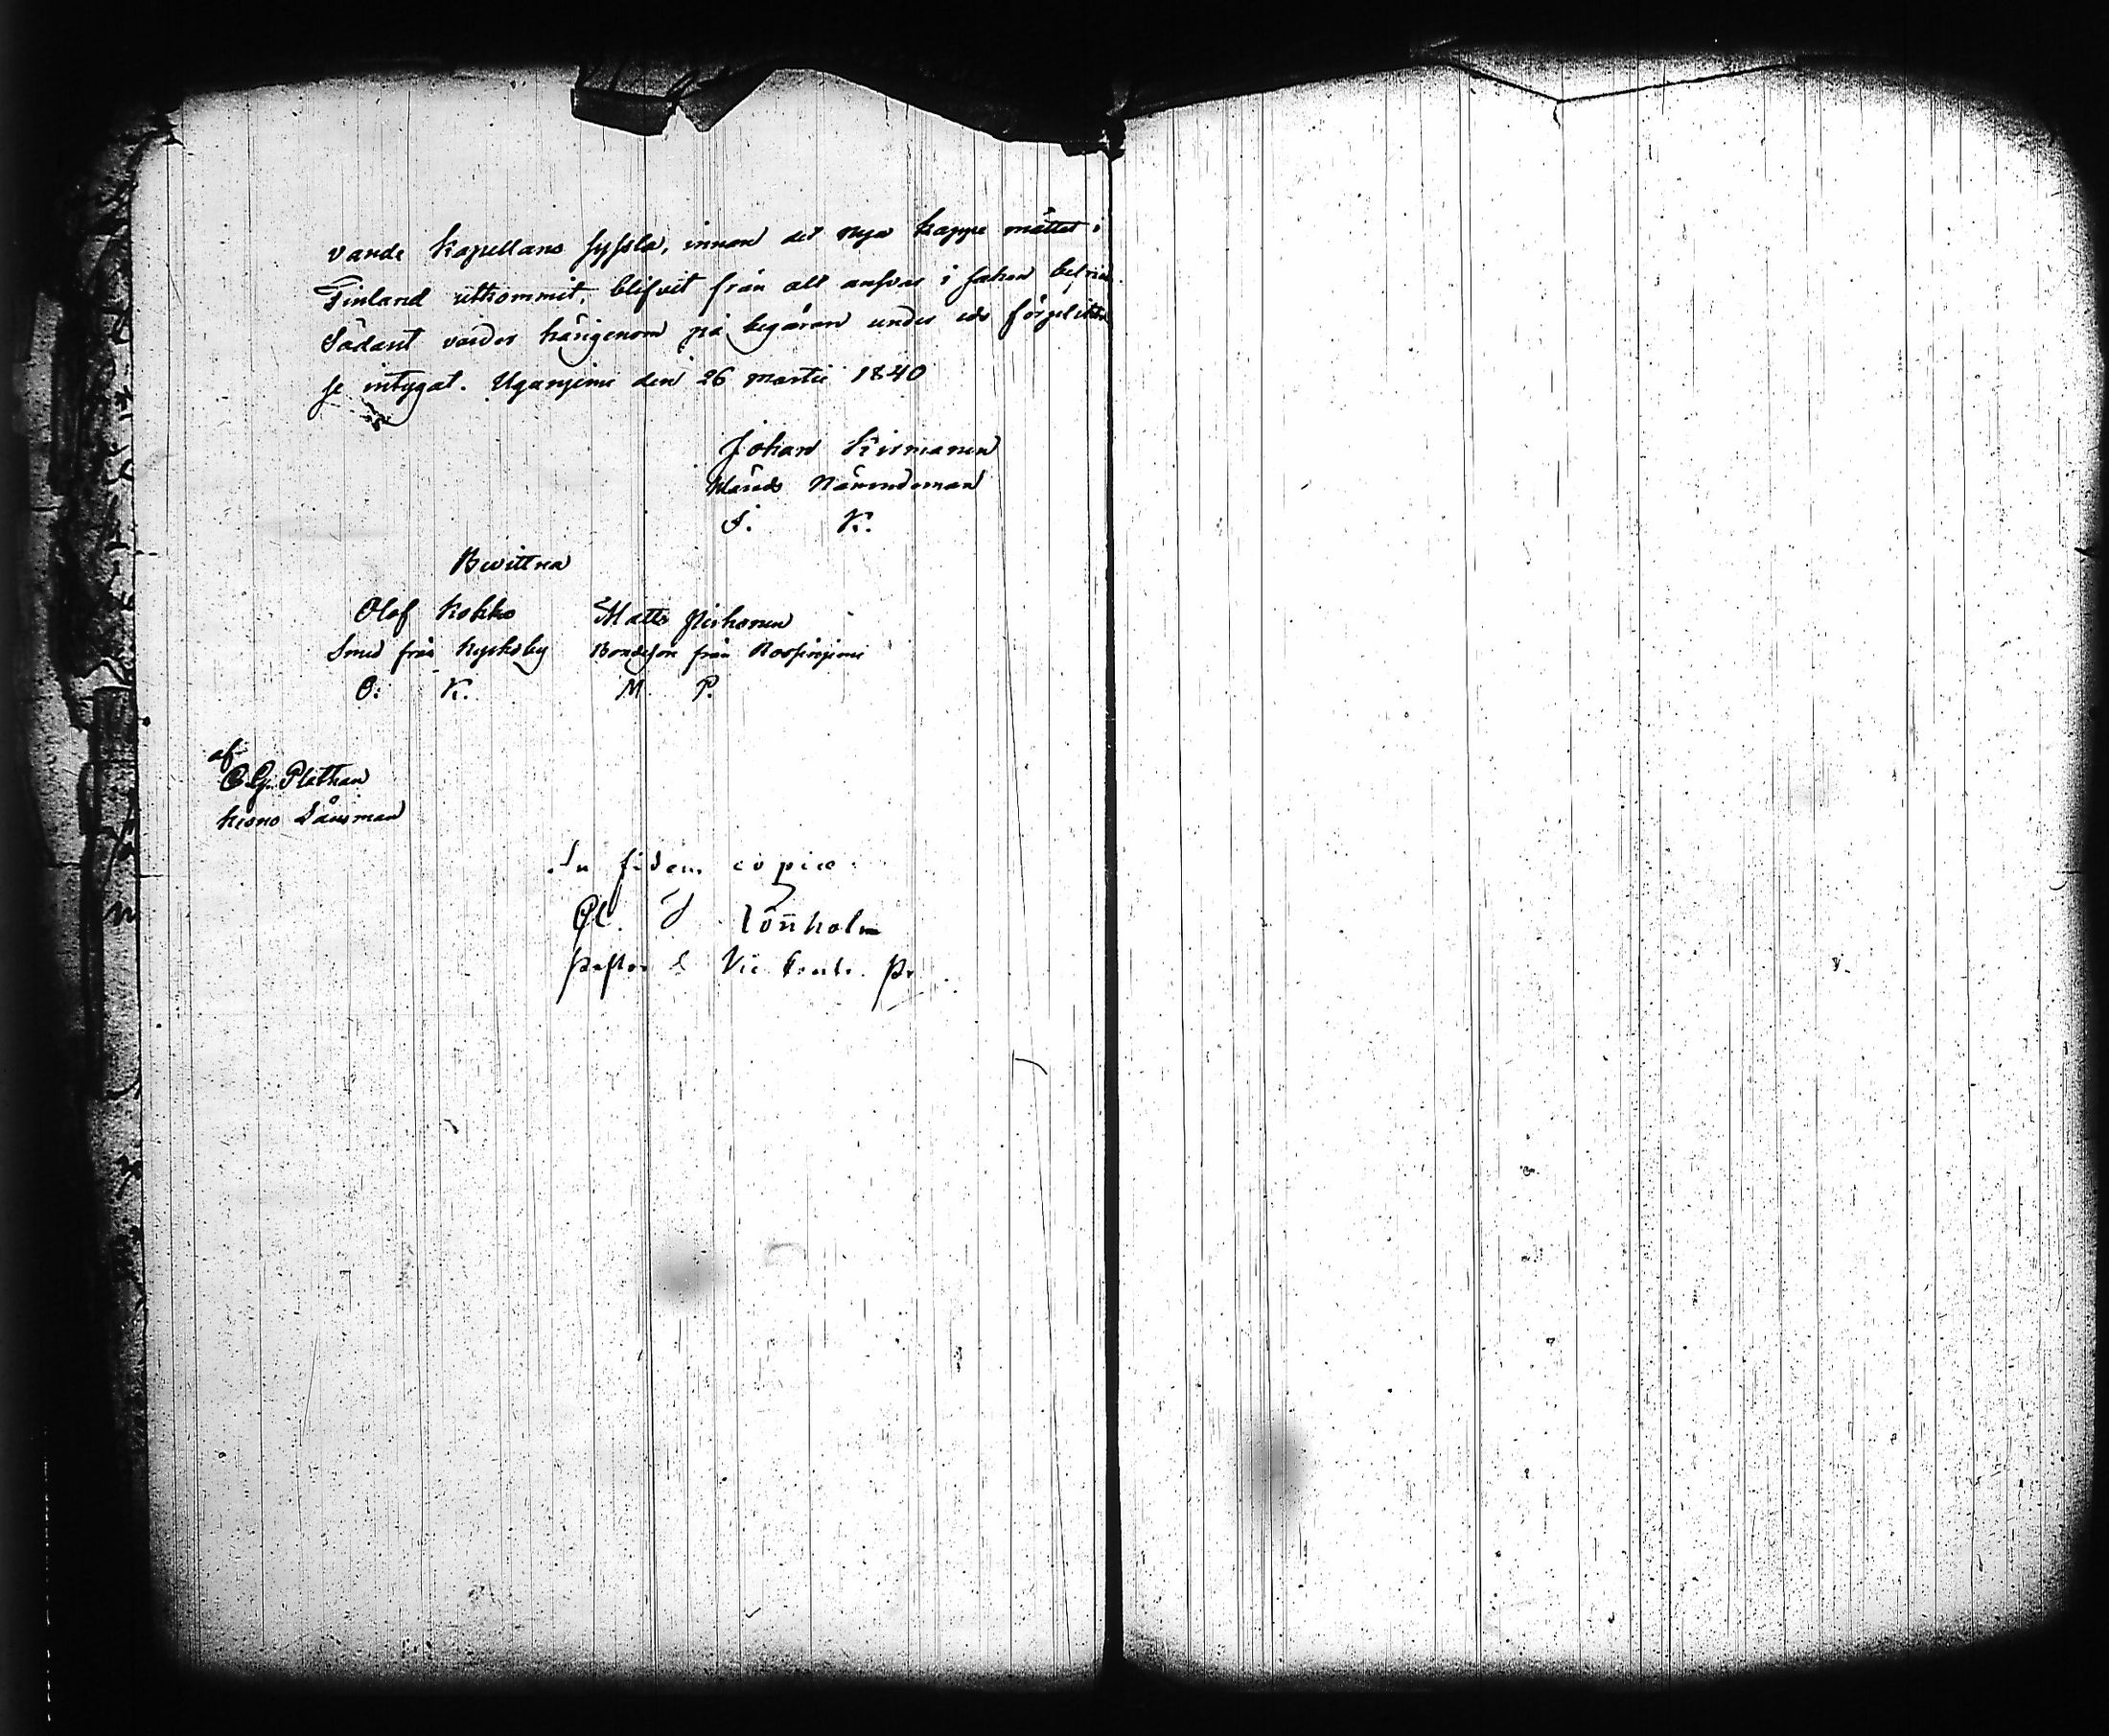 vande Kapellans syssla, innan det nya kappe måttet i
Finland utkommit, blifvit från all ansvar i saken befriad
Sådant varder härigenom på begäran under eds förpliktel
se intygat. Uganjemi den 26 Martii 1840
Johan Kirmanen
Härads Nämndeman
J. K.
Bevittna
Olof Kokko Matts Pirhonen
Smed från Kyrkoby Bondeson från
O. K. M. P.
af
C. G. Plathan
krono Länsman
In fidem copiæ
Lönholm
Pastor & Vic. Pr